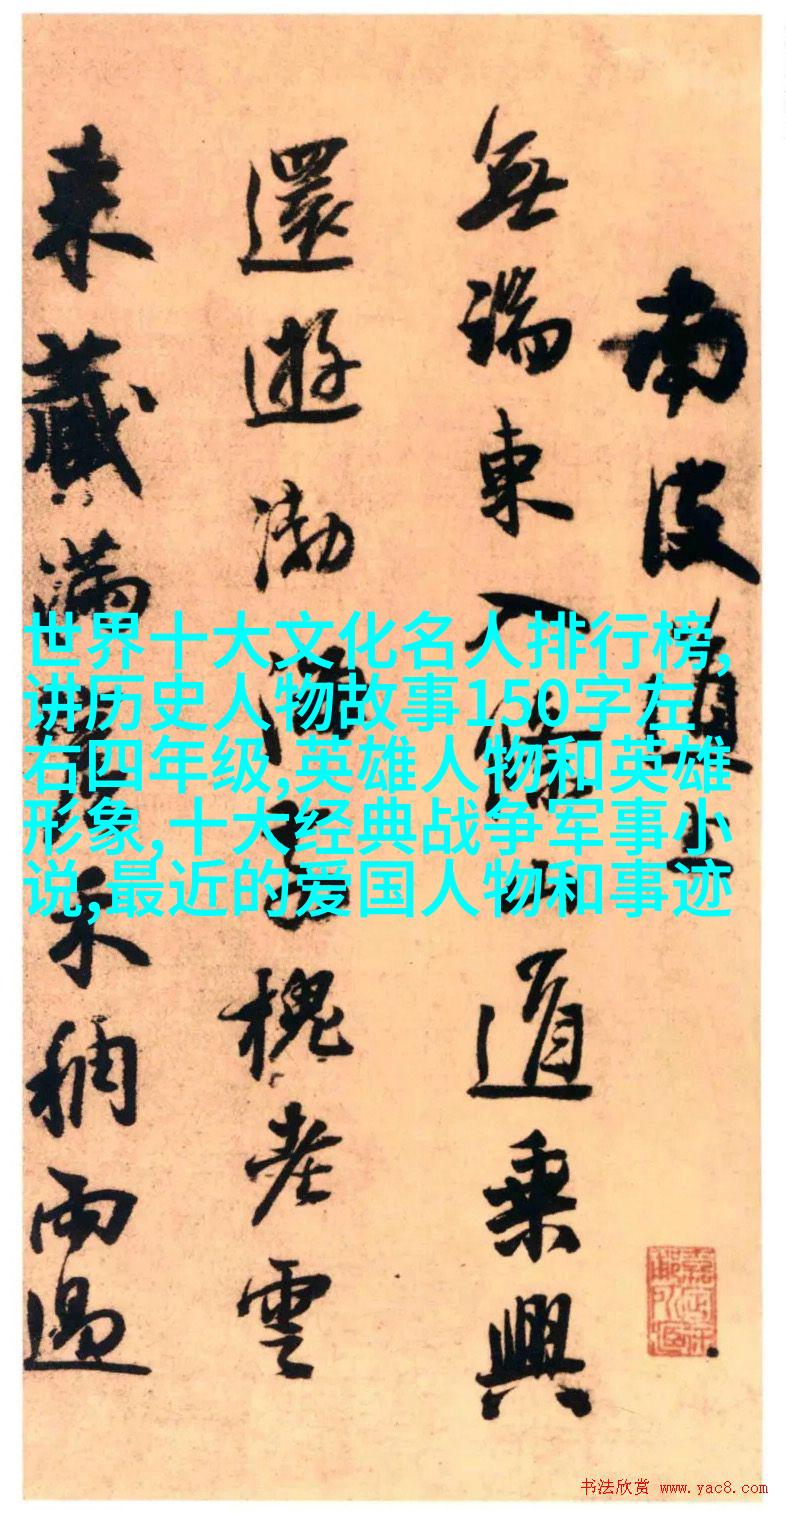 南皮道上
無端東入道乘興
還遊渤海槐老雲
來藏滿禾稠雨過
世界十大文化名人排行榜,
讲历史人物故事150字左
右四年级,英雄人物和英雄
形象,十大经典战争军事小
说,最近的爱国人物和事迹
书法欣赏 www.yac8.com